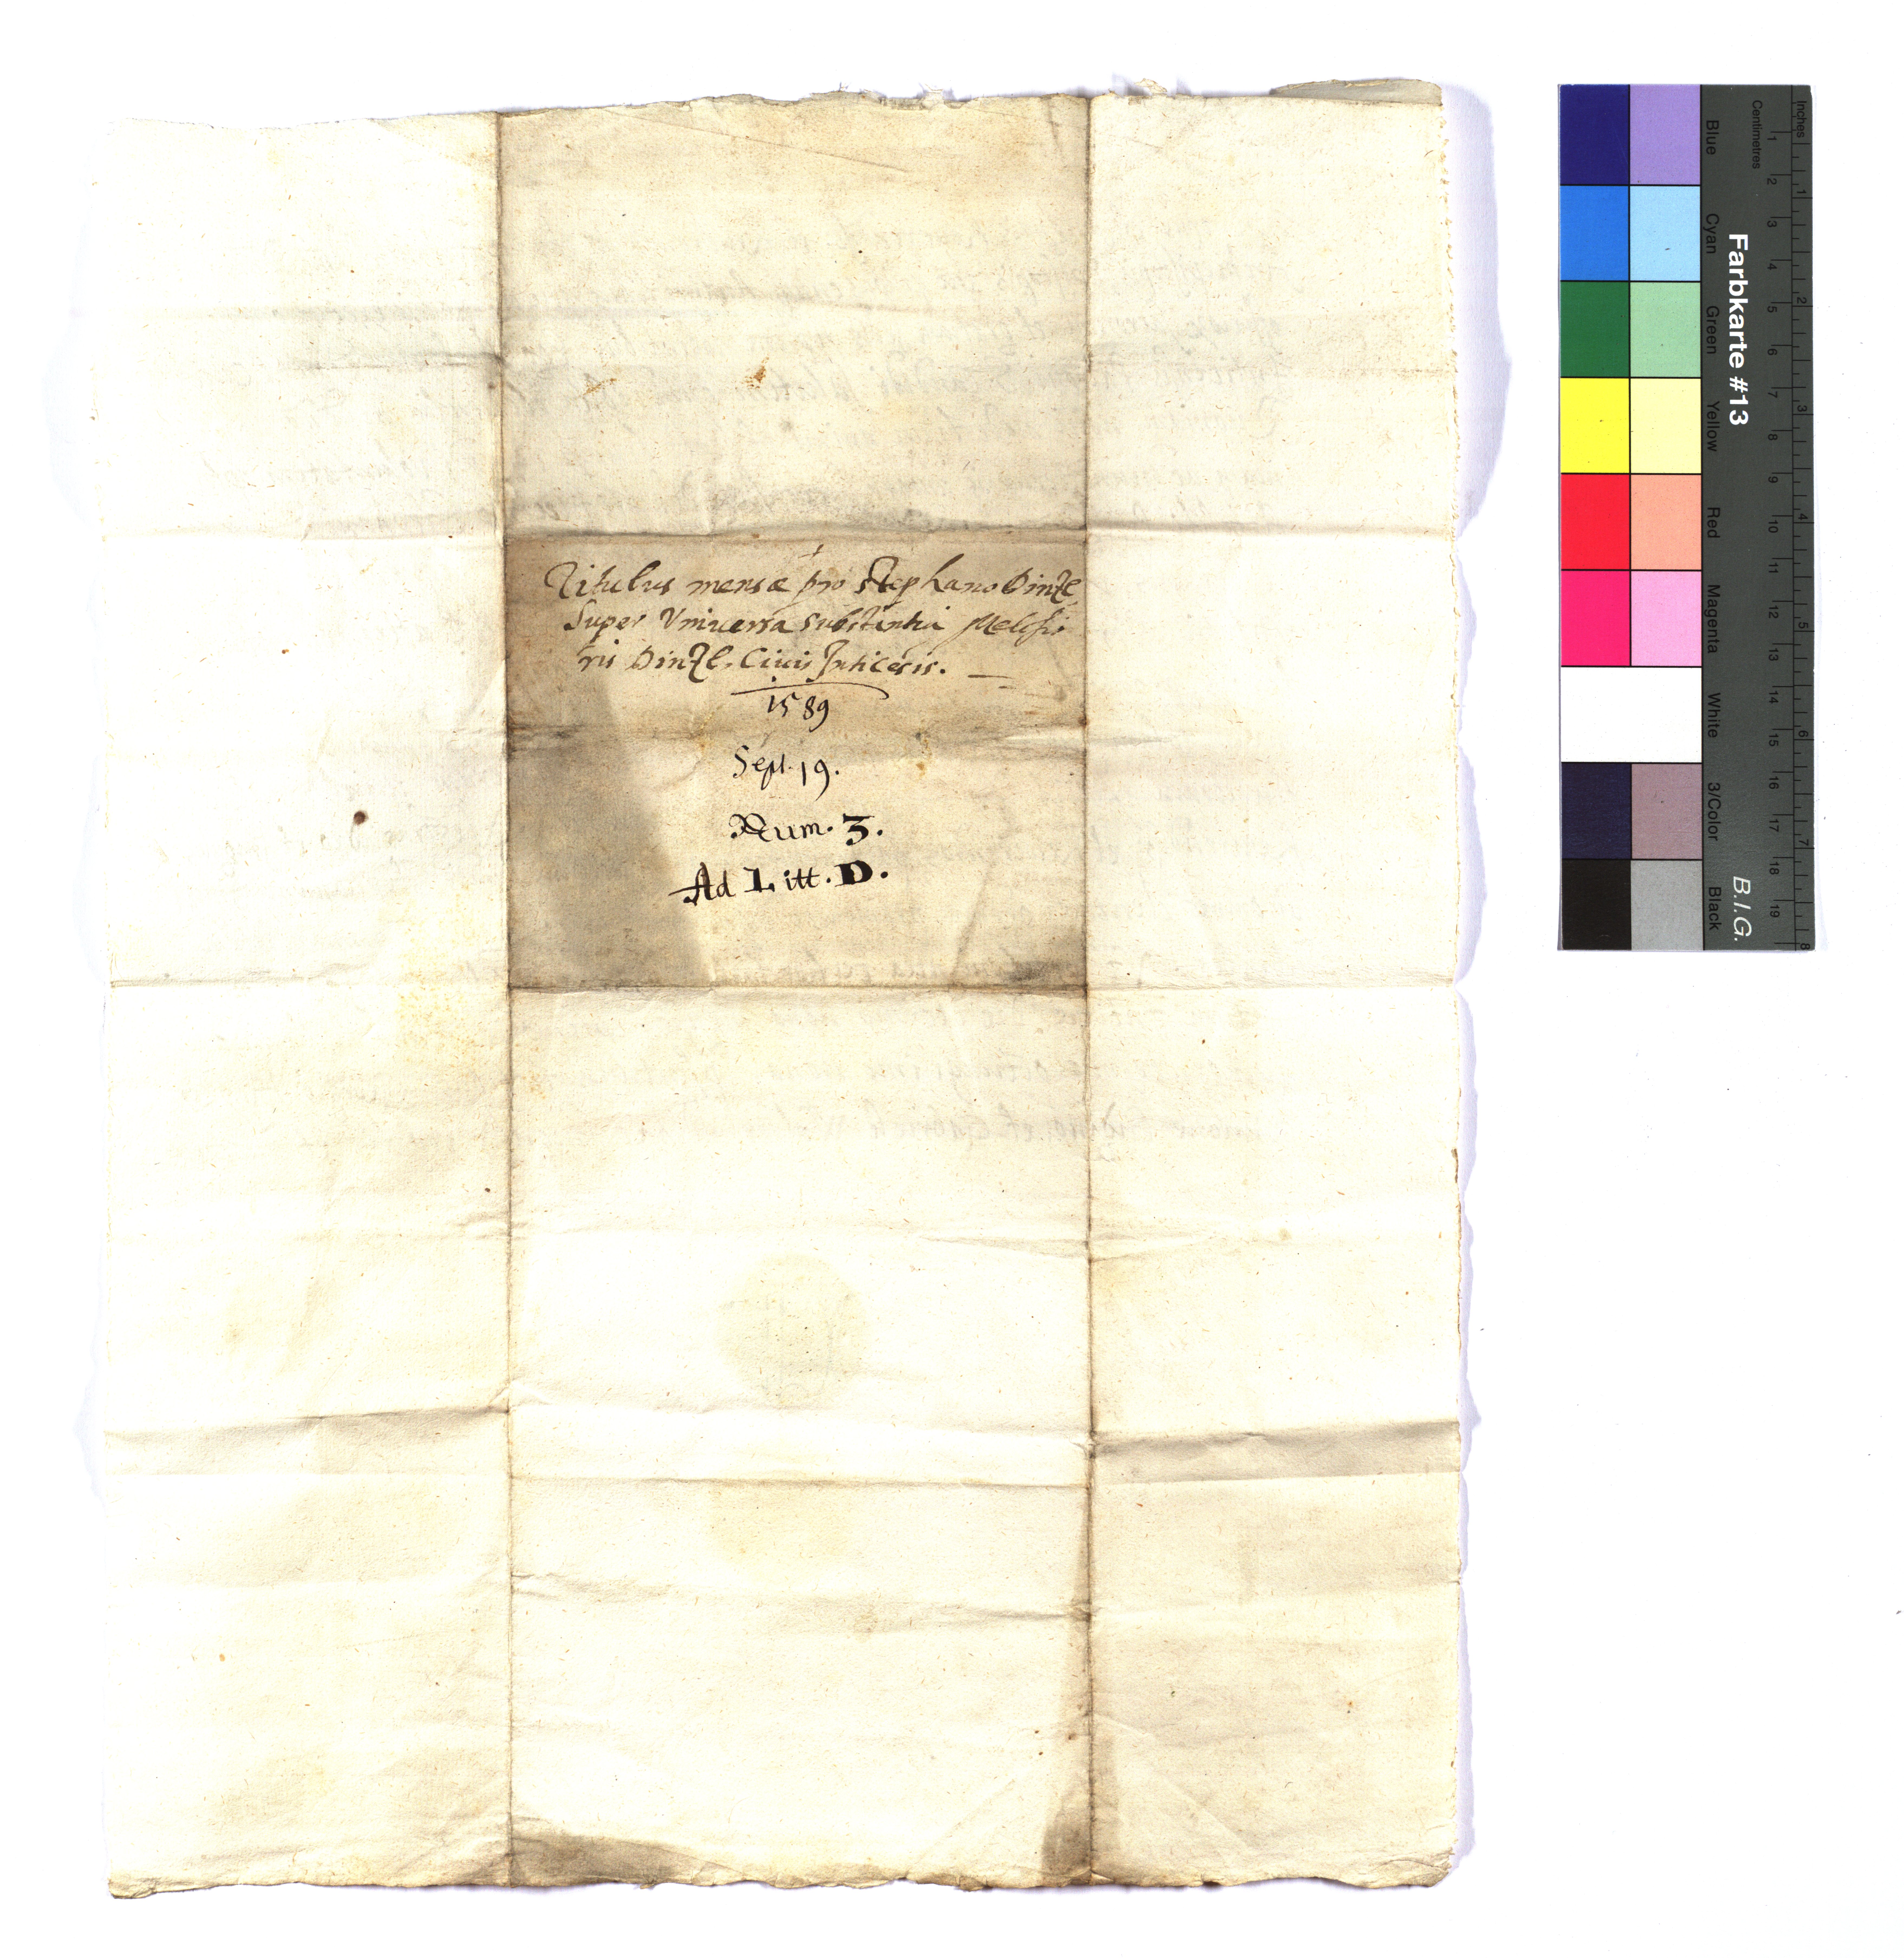 Titulus mensæ pro Stephano Dinzl
Super Vniuersa substantia Melchio
ris Dinzl, Ciuis Inticesis.
1589
Sept. 19.
Num. 3.
Ad Litt. D.
Farbkarte #13
B.I.G.
Blue
Cyan
Green
Yellow
Red
Magenta
White
3/Color
Black
Centimetres
1 2 3 4 5 6 7 8 9 10 11 12 13 14 15 16 17 18 19
Inches
1 2 3 4 5 6 7 8